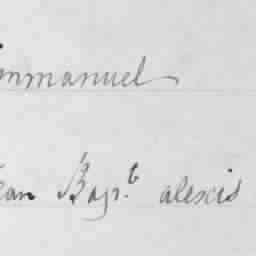 Emmanuel
Jean Bap.t alexis